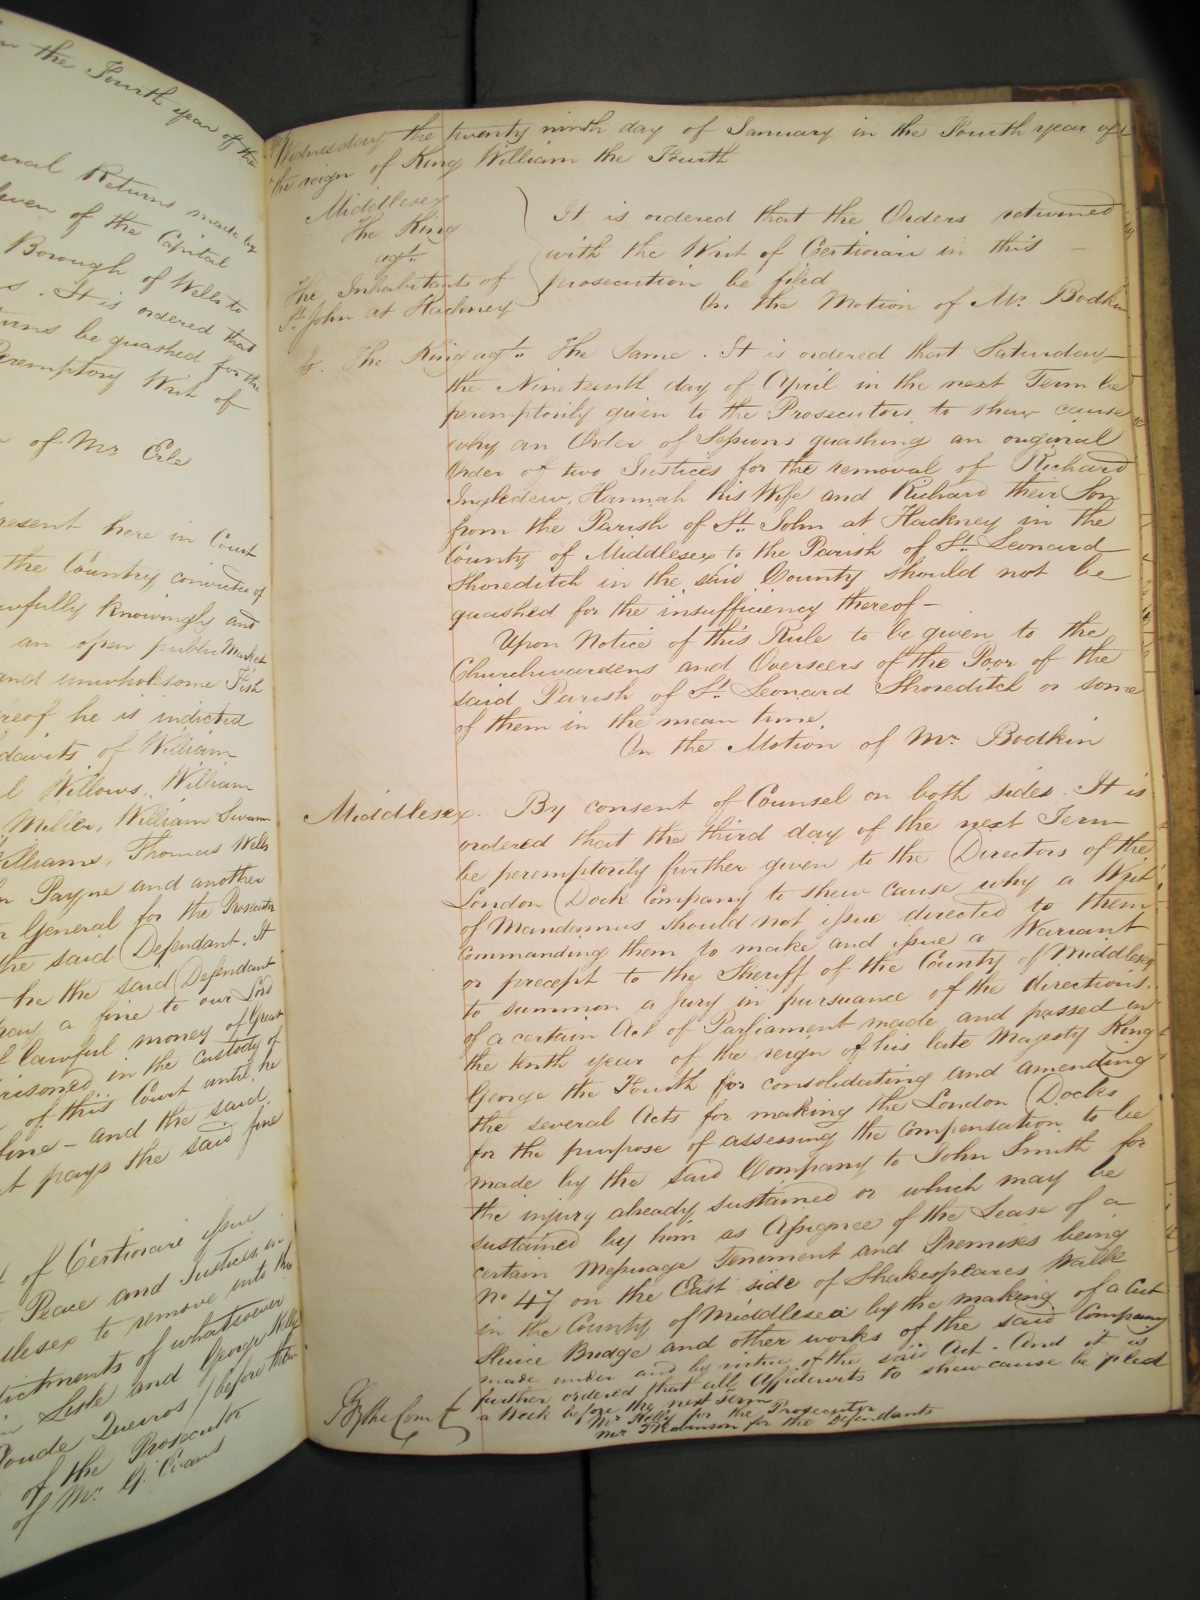 in the Fourth year of the
eral Returns made by
leven of the Capital
Borough of Wells to
s. It is ordered that
urns be quashed for the
Peremptory Writ of
of Mr. Erle
resent here in Court
the Country convicted of
wfully knowingly and
an open public Market
and unwholesome Fish
reof he is indicted
davits of William
l Willows, William
Miller, William Swann
Williams, Thomas Wells
n Payne and another
General for the Prosecutor
the said Defendant. It
he the said Defendant
pay a fine to our Lord
lawful money of Great
risoned in the custody of
of this Court until he
fine – and the said
t pays the said fine
of Certiorari issue
Peace and Justices in
dlesex to remove into this
dictments of whatsoever
Leslie and George Kelly
Queiros / before them
of the Prosecutor
of Mr. G. Evans
Wednesday the twenty ninth day of January in the Fourth year of
the reign of King William the Fourth
Middlesex
The King
agt.
The Inhabitants of
St. John at Hackney
It is ordered that the Orders returned
with the Writ of Certiorari in this
prosecution be filed
On the Motion of Mr. Bodkin
The King agt. The Same. It is ordered that Saturday
the Nineteenth day of April in the next Term be
peremptorily given to the Prosecutors to shew cause
why an Order of Sessions quashing an original
Order of two Justices for the removal of Richard
Ingledew, Hannah his Wife and Richard their Son
from the Parish of St. John at Hackney in the
County of Middlesex to the Parish of St. Leonard
Shoreditch in the said County should not be
quashed for the insufficiency thereof –
Upon Notice of this Rule to be given to the
Churchwardens and Overseers of the Poor of the
said Parish of St. Leonard Shoreditch or some
of them in the mean time.
On the Motion of Mr. Bodkin
Middlesex. By consent of Counsel on both sides. It is
ordered that the third day of the next Term
be peremptorily further given to the Directors of the
London Dock Company to shew cause why a Writ
of Mandamus should not issue directed to them
commanding them to make and issue a Warrant
or precept to the Sheriff of the County of Middlesex
to summon a jury in pursuance of the directions
of a certain Act of Parliament made and passed in
the tenth year of the reign of his late Majesty King
George the Fourth for consolidating and amending
the several Acts for making the London Docks
for the purpose of assessing the compensation to be
made by the said Company to John Smith for
the injury already sustained or which may be
sustained by him as Assignee of the Lease of a
certain Messuage Tenement and Premises being
No. 47 on the East side of Shakespeares Walk
in the County of Middlesex by the making of a Cut
Sluice Bridge and other works of the said Company
made under and by virtue of the said Act. And it is
further ordered that all Affidavits to shew cause be filed
a Week before the next Term
Mr. Kelly for the Prosecutor
Mr. F. Robinson for the Defendants
By the Court